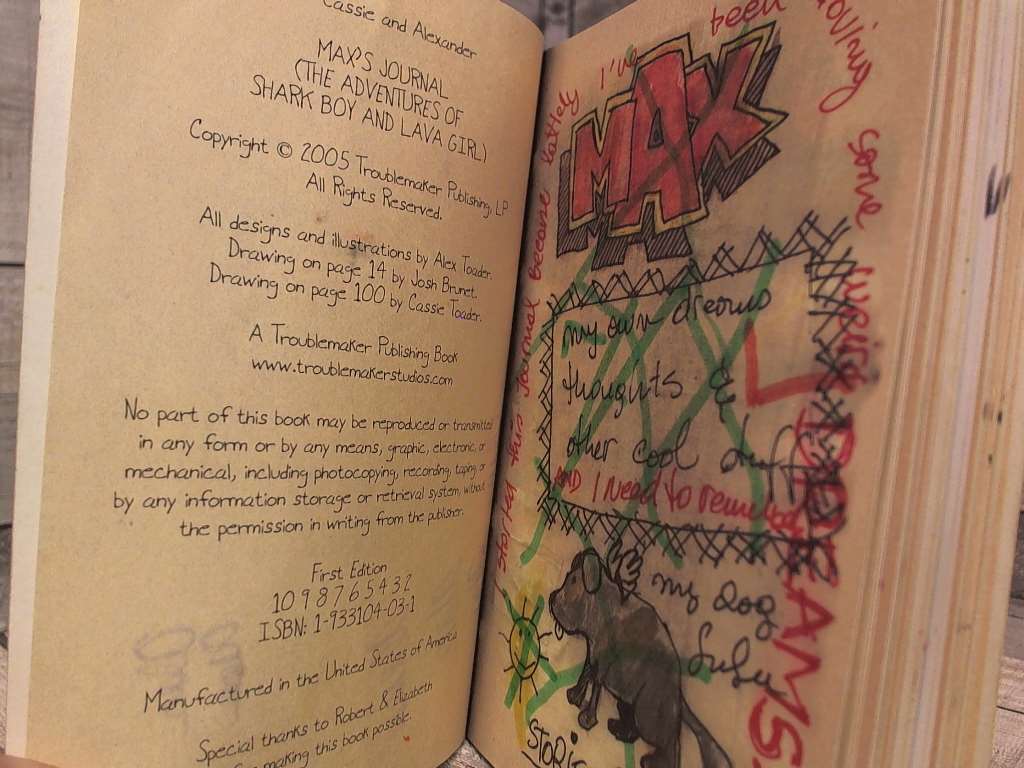 Cassie and Alexander
MAX'S JOURNAL
(THE ADVENTURES OF
SHARK BOY AND LAVA GIRL)
Copyright © 2005 Troublemaker Publishing, LP
All Rights Reserved.
All designs and illustrations by Alex Toader.
Drawing on page 14 by Josh Brunet.
Drawing on page 100 by Cassie Toader.
A Troublemaker Publishing Book
www.troublemakerstudios.com
No part of this book may be reproduced or transmitted
in any form or by any means, graphic, electronic, or
mechanical, including photocopying, recording, taping, or
by any information storage or retrieval system, without
the permission in writing from the publisher.
First Edition
10 9 8 7 6 5 4 3 2
ISBN: 1-933104-03-1
Manufactured in the United States of America
Special thanks to Robert & Elizabeth
making this book possible.
MAX
started this journal because lately I've been having some weird DREAMS
my own dreams
thoughts &
other cool stuff
AND I need to
my dog